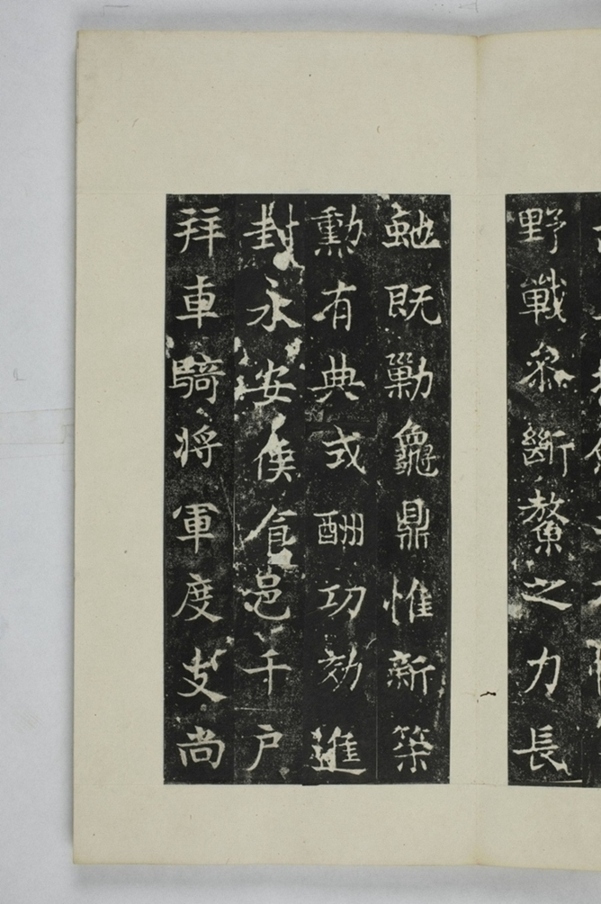 野戰忝斷鼇之力長
虵既勦龜鼎惟新築
勳有典式酬功効進
封永安侯食邑千戶
拜車騎將軍度支尚